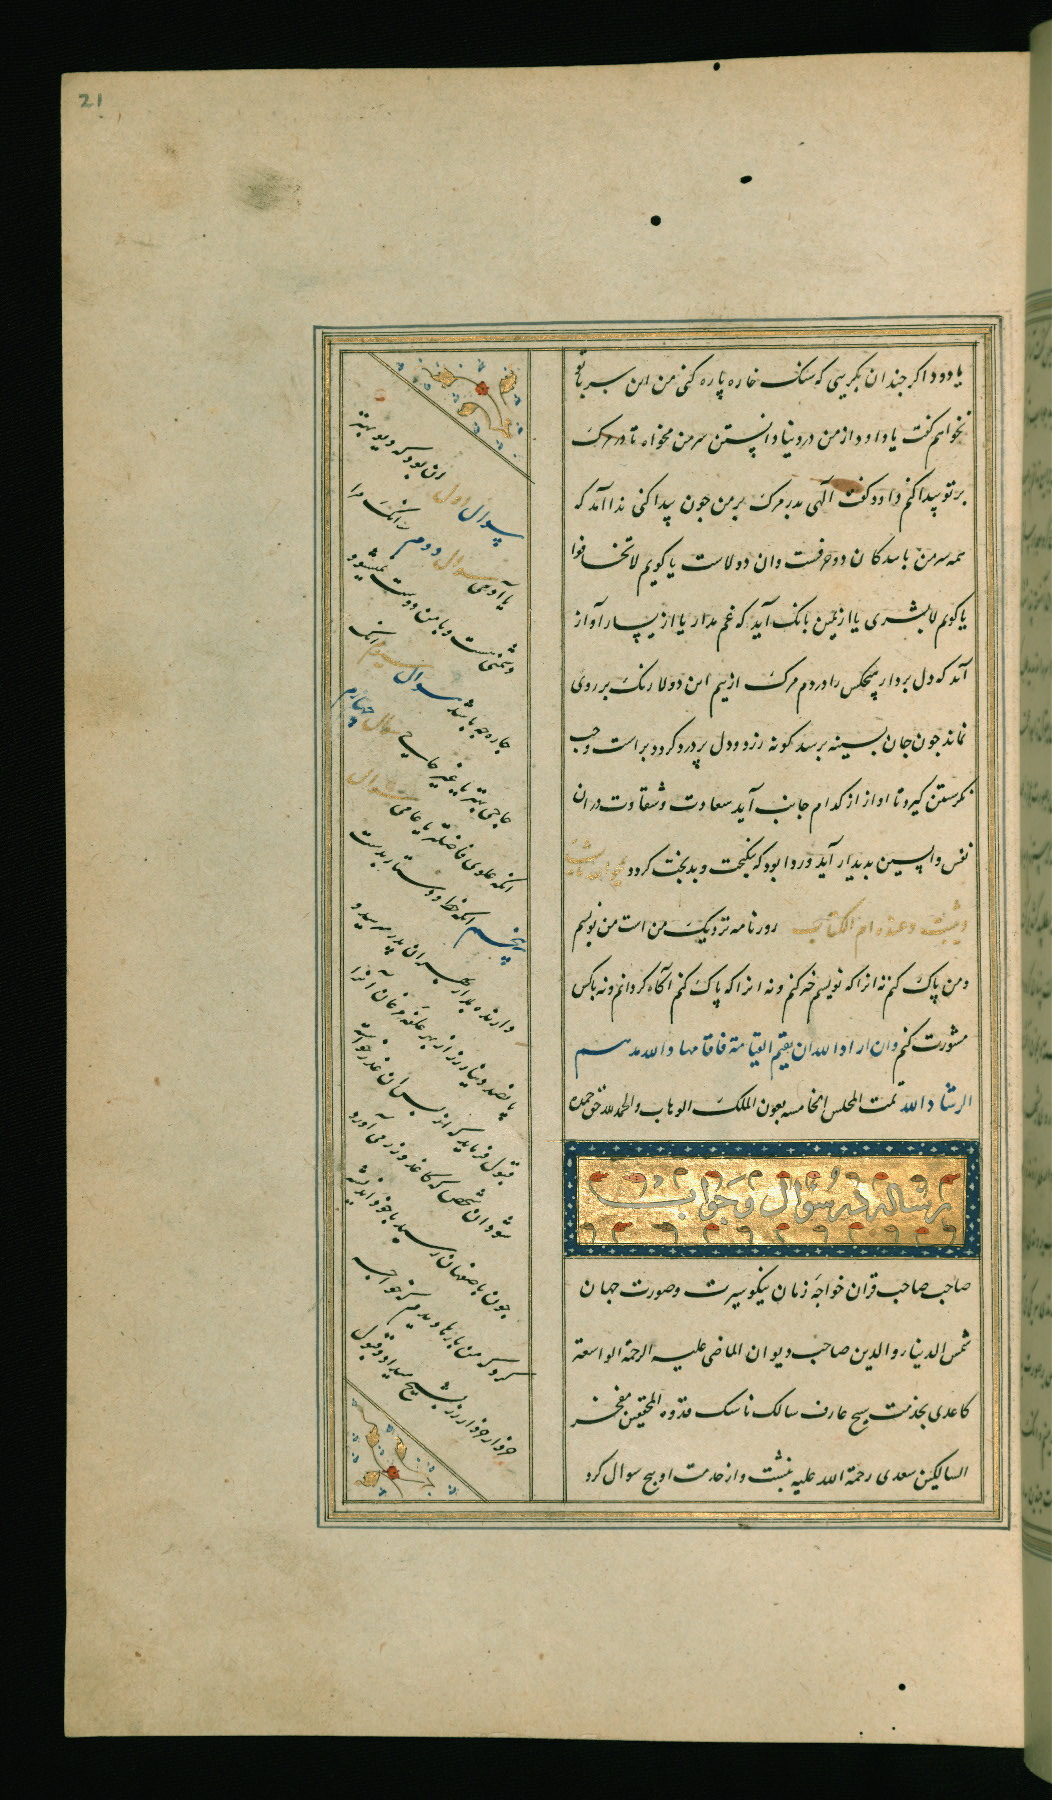 21
یا دود اکر چندان بکریی که سنک خاره پاره کنی من این سر با تو
نخواهم کفت یا داود از من در دنیا دانستن سر من مخواه تا در مرک
بر تو پیدا کنم داود کفت الهی مدبر مرک بر من چون پیدا کنی ندا آمد که
همه سر من با بندکان دو حرفست و ان دو لاست یا کویم لا تخافوا
یا کویم لا بشری یا از یمین بانک آید که غم مدار یا از یسار آواز
آید که دل بردار هیچکس را در دم مرک از بیم این دو لا رنک بر روی
نماند چون جان بسینه برسد کونه زرد و دل پر درد کردد براست و چپ
نکرستن کیرد تا اواز از کدام جانب آید سعادت و شقاوت در ان
نفس واپسین بدیدار آید و ردا بود که نیکبخت و بدبخت کردد یمح الله ما یشاء
و یثبت و عنده ام الکتاب روزنامه نزدیک من است من نویسم
و من پاک کنم نه انرا که نویسم خه کنم و نه انرا که پاک کنم آکاه کردانم و نه باکس
مشورت کنم و ان اراد الله ان یقیم القیامة فاقامها و الله مدهم
الرشاد الله تمت المجلس الخامسه بعون الملک الوهاب و الحمد لله حق حمده
رساله در سؤال و جواب
صاحب صاحب قران خواجه زمان نیکو سیرت و صورت جهان
شمس الدنیا و الدین صاحب دیوان الماضی علیه الرحمة الواسعة
کاعدی بخدمت شیخ عارف سالک ناسک قدوه المحققین مفخر
السالکین سعدی رحمة الله علیه بنبشت و از خدمت او پنج سوال کرد
سوال اول ان بود که دیو بهتر
یا آدمی سوال دوم آنک مرا
دشمنی هست و با من دوست نمیشود
چاره چه باشد سوال سیوم انک
حاجی بهتر یا غیر حاجی سوال چهارم
انکه علوی فاضلتر یا عامی سوال
پنجم انکه خط و دستار بدست
دارنده بدار پسران پدر میرسد و
پانصد دینار زر از بهر علفه مرغان آنرا
قبول فرماید که از پس ان عذر خواسته
شود ان شخص که کاغد و زر می آورد
چون باصفهان رسید با خود اندیشه
کرد که من بارها دیدم که خواجه
خروار خروار زر بشیخ میداد و قبول